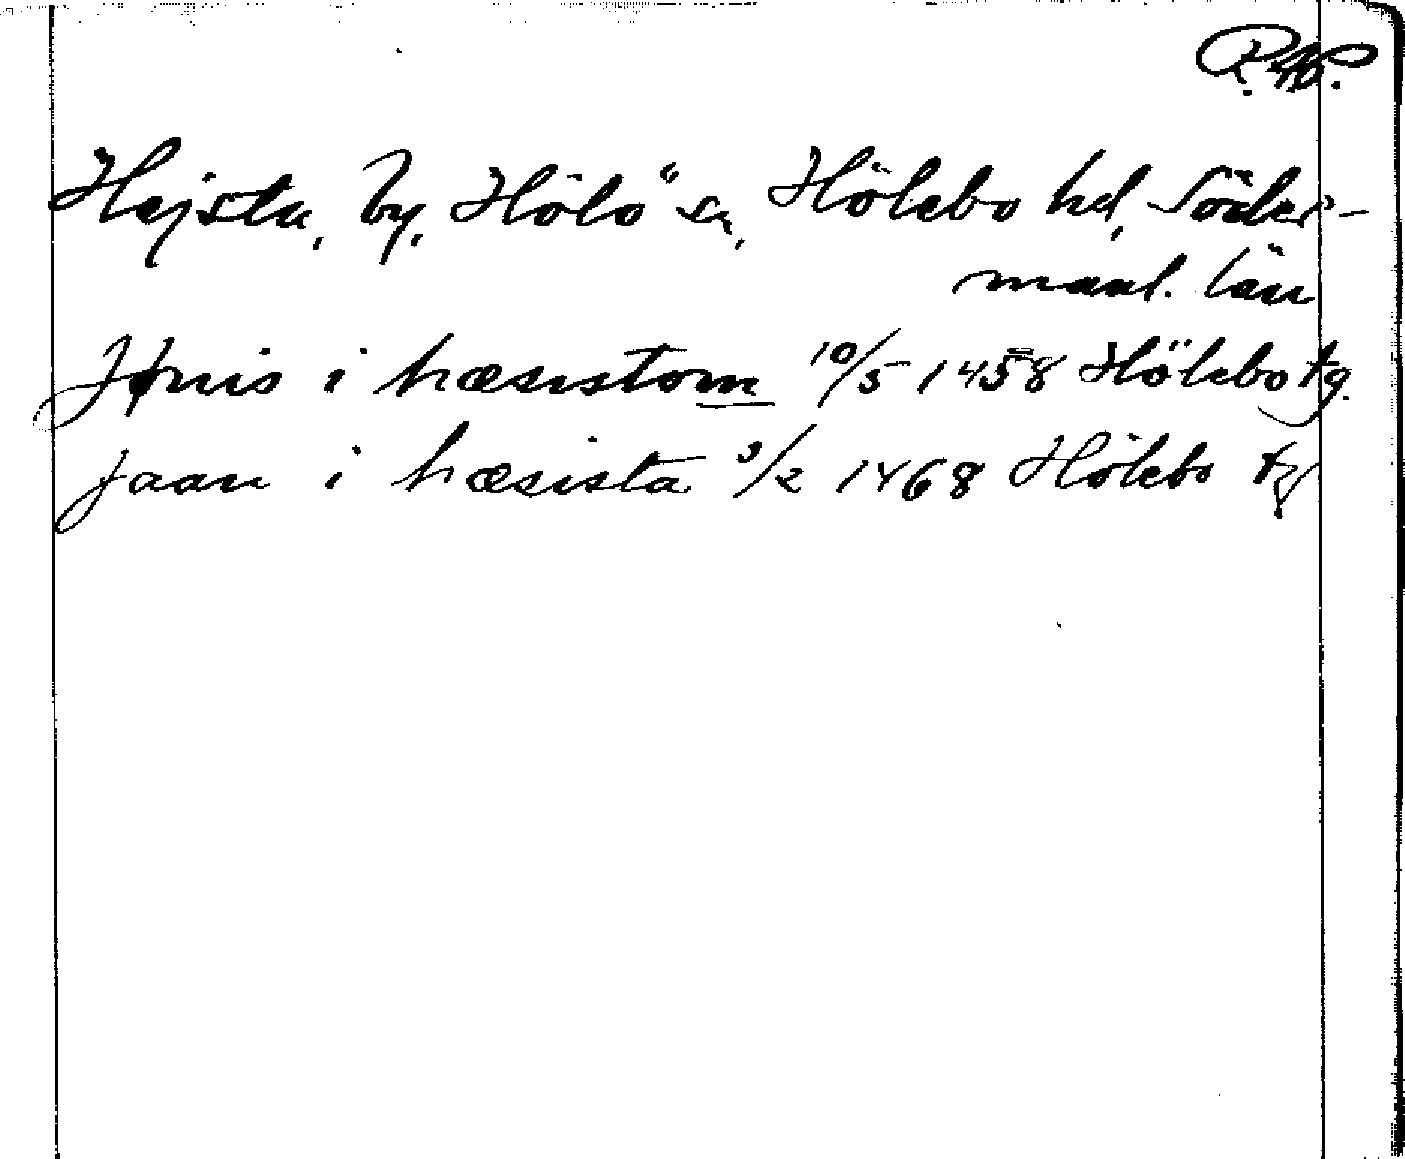 Hejsta, by, Hölö sn, Hölebo hd, Söder-
manl. län
Jønis i hæsistom 10/5 1458 Hölebo tg.
jaan i hæsista 3/2 1468 Hölebo tg